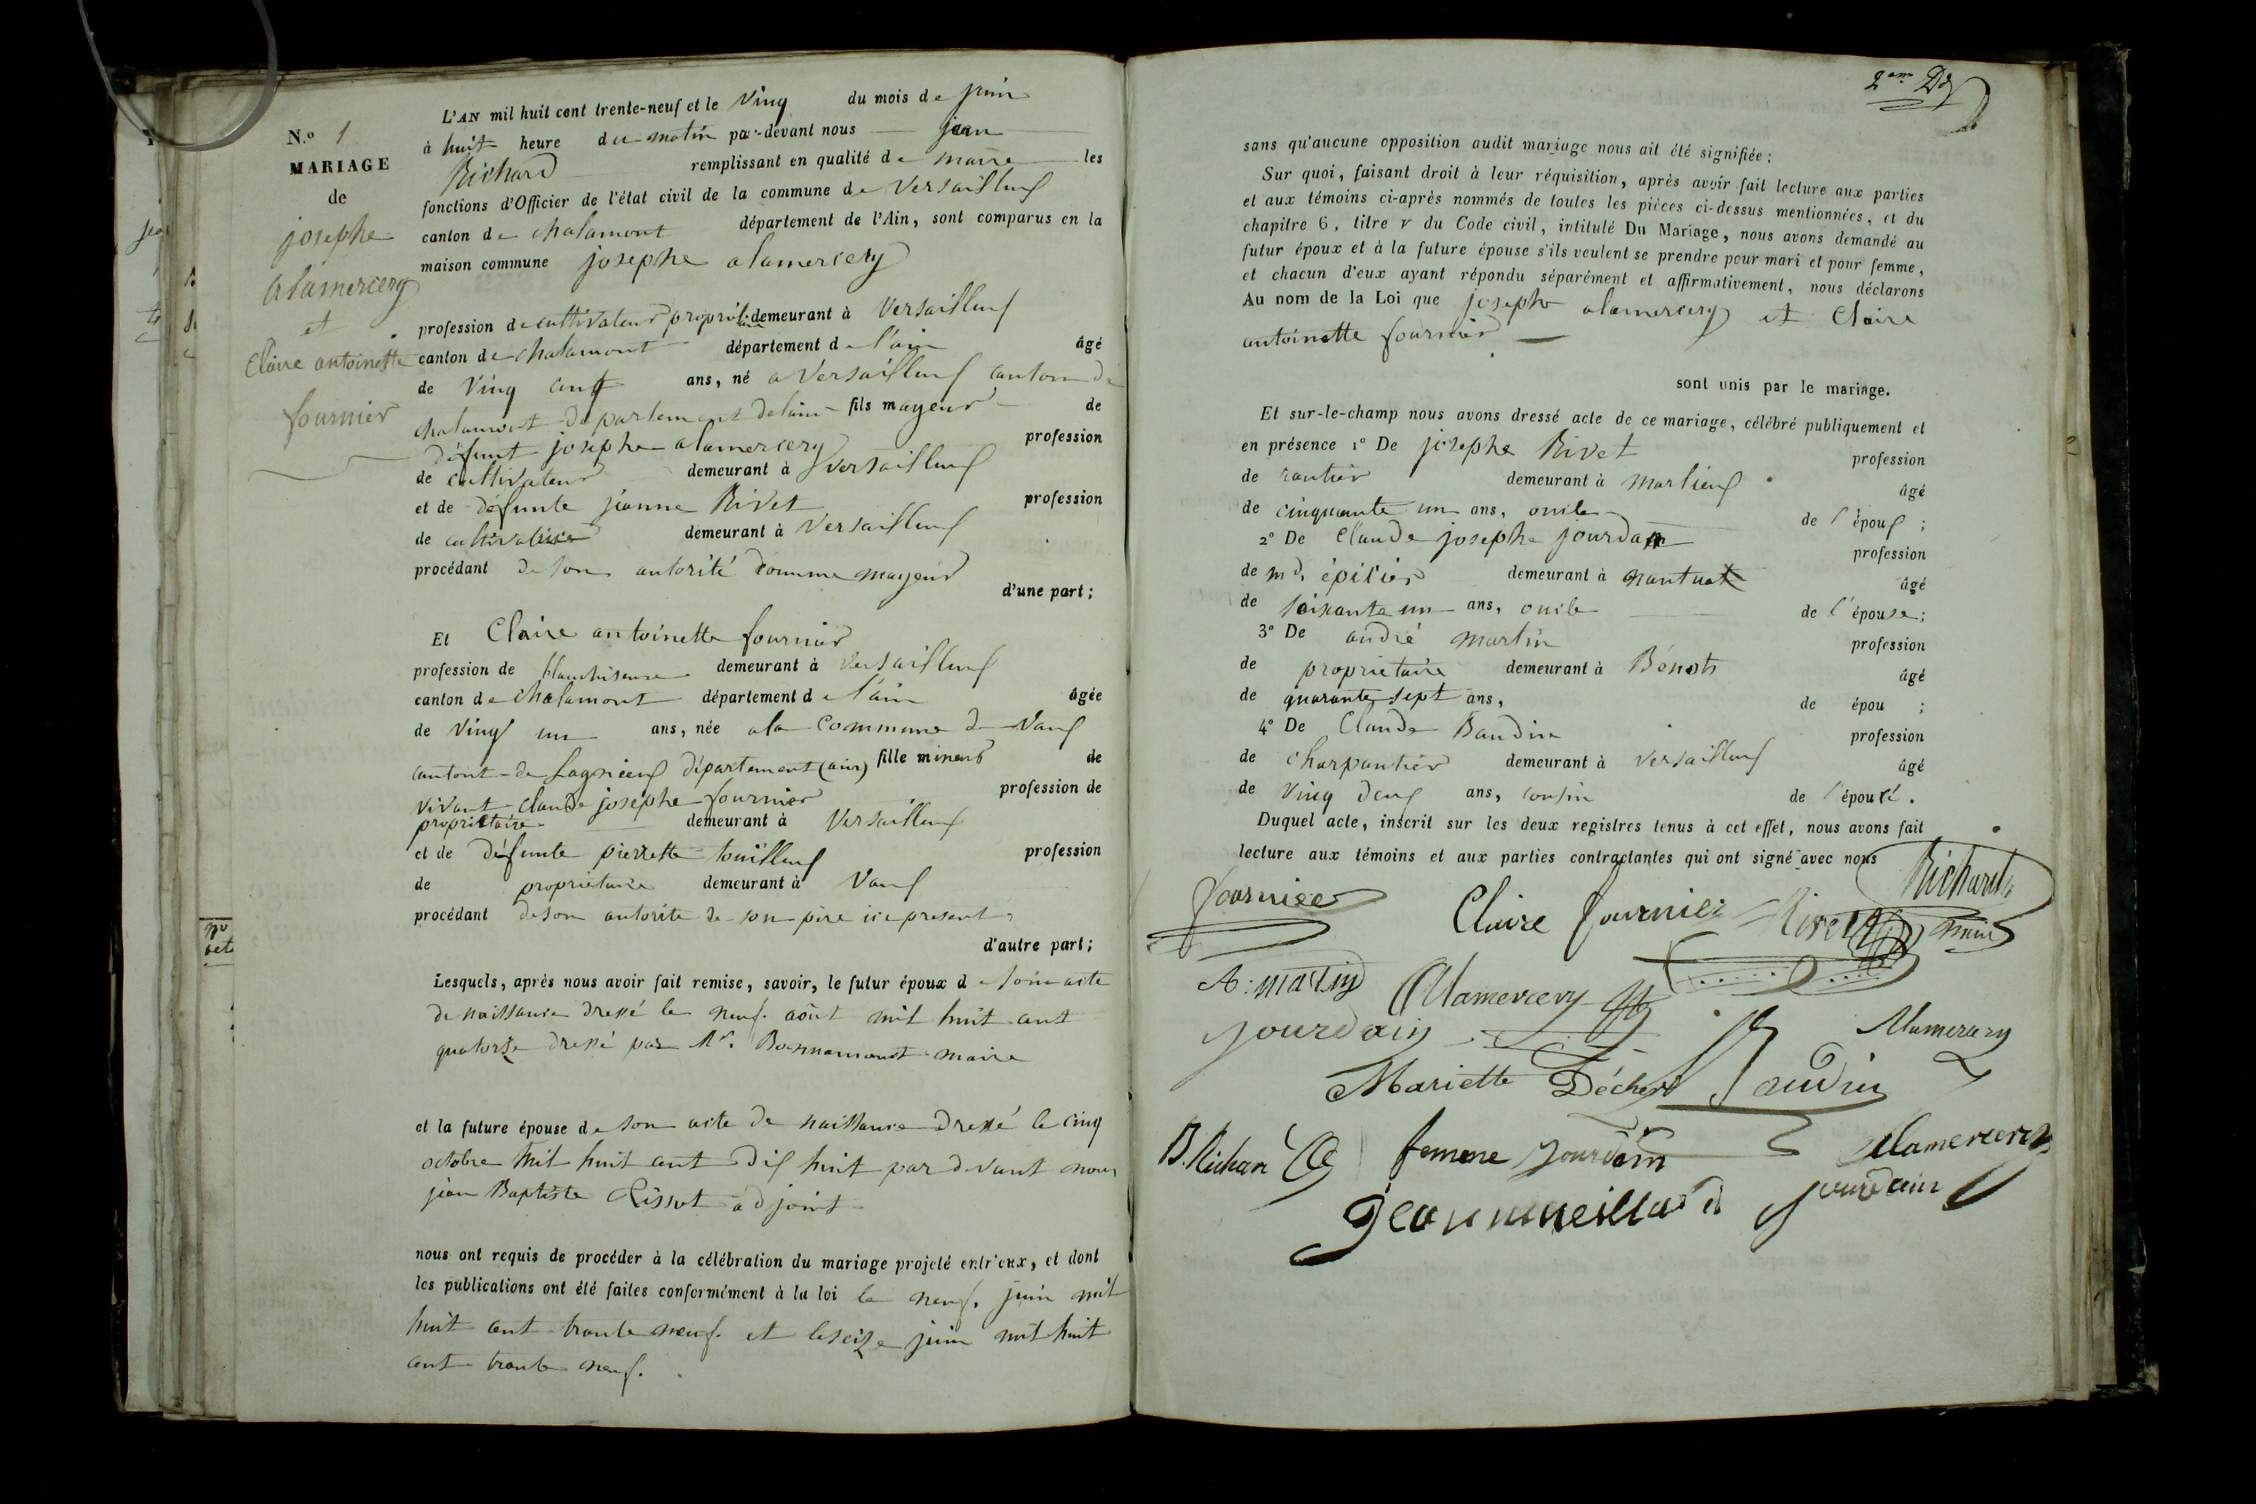 N.o 1
MARIAGE
de
josephe
alamercery
et
Claire antoinette
fournier
L'AN mil huit cent trente-neuf et le Ving du mois de juin
à huit heure du matin par-devant nous jean
Richard remplissant en qualité de maire les
fonctions d'Officier de l'état civil de la commune de Versailleuf
canton de chalamont département de l'Ain, sont comparus en la
maison commune josephe alamercery
profession de cultivateur propriétaire demeurant à Versailleuf
canton de chalamont département de l'ain âgé
de Ving cinq ans, né a Versailleuf canton de
chalamont département delain fils mayeur de
défunt josephe alamercery profession
de cultivateur demeurant à Versailleuf
et de défunte jeanne Rivet profession
de cultivatrice demeurant à Versailleuf
procédant de son autorité comme mayeur
d'une part;
Et Claire antoinette fournier
profession de blanchiseuse demeurant à Versailleuf
canton de chalamont département de l'ain âgée
de Ving un ans, née ala commune de Vauf
cantont de Lagnieuf département (ain) fille mineur de
vivant claude josephe fournier profession de
propriétaire demeurant à Versailleuf
et de défunte pierrette touilleuf profession
de propriétaire demeurant à Vauf
procédant deson autorite de son père ice present
d'autre part;
Lesquels, après nous avoir fait remise, savoir, le futur époux de son acte
de naissance dressé le neuf août mil huit cent
quatorze dressé par Mr. Bonnamour maire
et la future épouse de son acte de naissance dressé le cinq
octobre mil huit cent dix huit par devant nous
jean Baptiste Rissot adjoint
nous ont requis de procéder à la célébration du mariage projeté entr'eux, et dont
les publications ont été faites conformément à la loi le neuf juin mil
huit cent trente neuf et leseize juin mil huit
cent trente neuf.
2em Dg
sans qu'aucune opposition audit mariage nous ait été signifiée;
Sur quoi, faisant droit à leur réquisition, après avoir fait lecture aux parties
et aux témoins ci-après nommés de toutes les pièces ci-dessus mentionnées, et du
chapitre 6, titre v du Code civil, intitulé Du Mariage, nous avons demandé au
futur époux et à la future épouse s'ils veulent se prendre pour mari et pour femme,
et chacun d'eux ayant répondu séparément et affirmativement, nous déclarons
Au nom de la Loi que josephe alamercery et Claire
antoinette fournier
sont unis par le mariage.
Et sur-le-champ nous avons dressé acte de ce mariage, célébré publiquement et
en présence 1° De josephe Rivet profession
de rantier demeurant à marlieuf âgé
de cinquante un ans, oncle de l'épouf;
2° De Claude josephe jourdan profession
de md. épicier demeurant à nantuat âgé
de soixante un ans, oncle de l'épouse;
3° De andré martin profession
de propriétaire demeurant à Bénost âgé
de quarante sept ans, de épou ;
4° De Claude Baudin profession
de charpantier demeurant à versailleuf âgé
de Ving deuf ans, cousin de l'épou .
Duquel acte, inscrit sur les deux registres tenus à cet effet, nous avons fait
lecture aux témoins et aux parties contractantes qui ont signé avec nous
Richard
fournier Claire fournier Rivet maire
A: martin Alamercery
jourdain Alamercery
Mariette Décher Baudin
B. Richard femme jourdain Alamercery
jeanmneillard jourdain